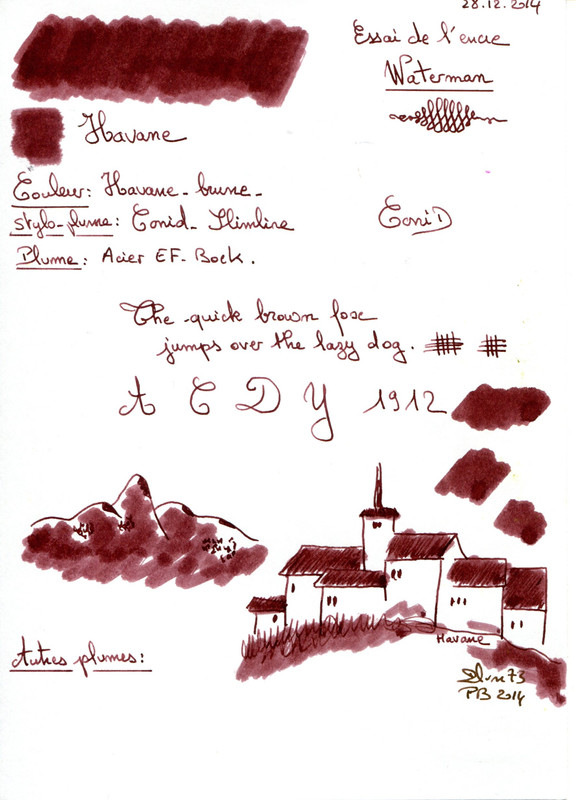 28.12.2014
Essai de l'encre
Waterman
Havane
Couleur: Havane-brune-
Stylo-plume: Conid-Slimline
Plume: Acier EF-Bock.
ConiD
The quick brown fox
jumps over the lazy dog.
A C D Y 1912
Havane
Autres plumes:
PB 2014